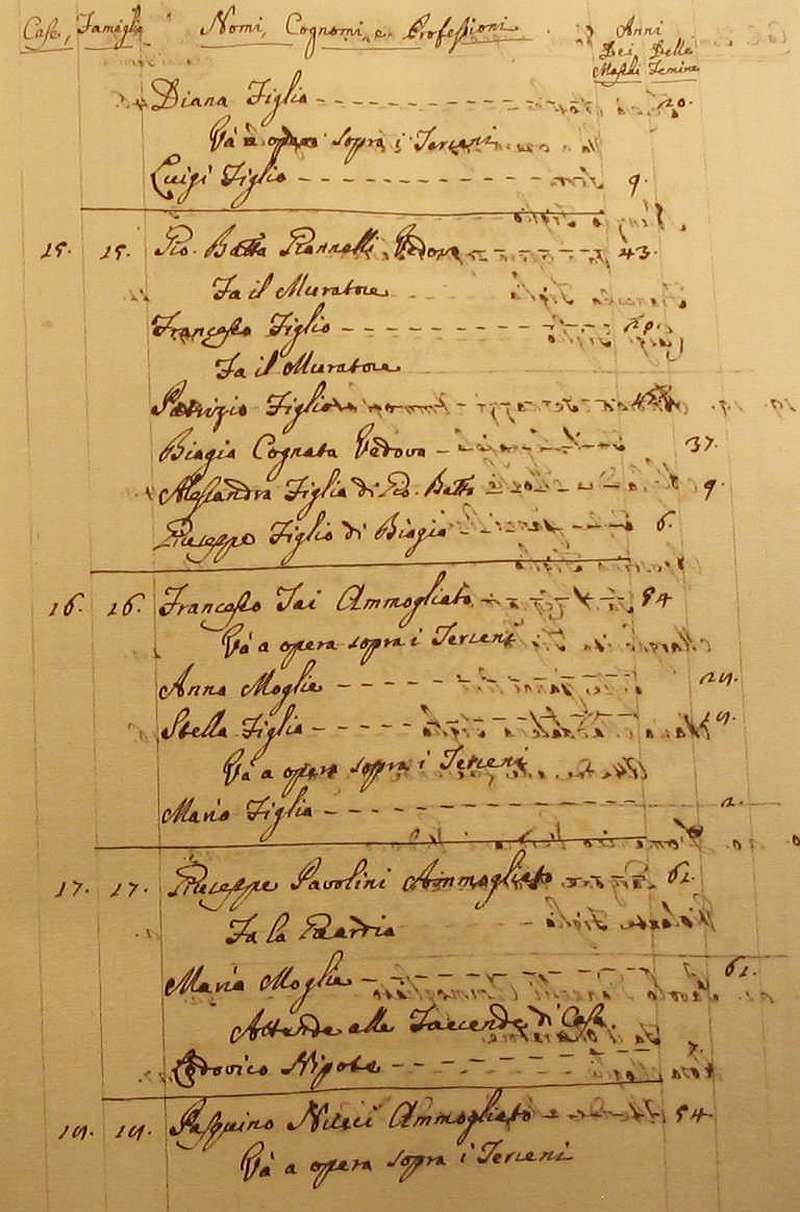 Case, Famiglie Nomi, Cognomi, e Professioni Anni
Dei Delle
Maschi Femine
Diana Figlia 20.
Và a opera sopra i Terreni
Luigi Figlio 9.
15. 15. Gio. Batta Giannelli Vedovo 43.
Fa il Muratore
Francesco Figlio 20.
Fa il Muratore
Patrizio Figlio
Biagia Cognata Vedova 37.
Alessandra Figlia di Gio. Batta 9.
Giuseppe Figlio di Biagia 6.
16. 16. Francesco Tai Ammogliato 54
Và a opera sopra i Terreni
Anna Moglie
Stella Figlia
Và a opera sopra i Terreni
Maria Figlia 2.
17. 17. Giuseppe Pavolini Ammogliato 61.
Fa la Guardia
Maria Moglie 61.
Attende alle Faccende di Casa.
Lodovico Nipote 7.
18. 18. Pasquino Ammogliato 54.
Và a opera sopra i Terreni